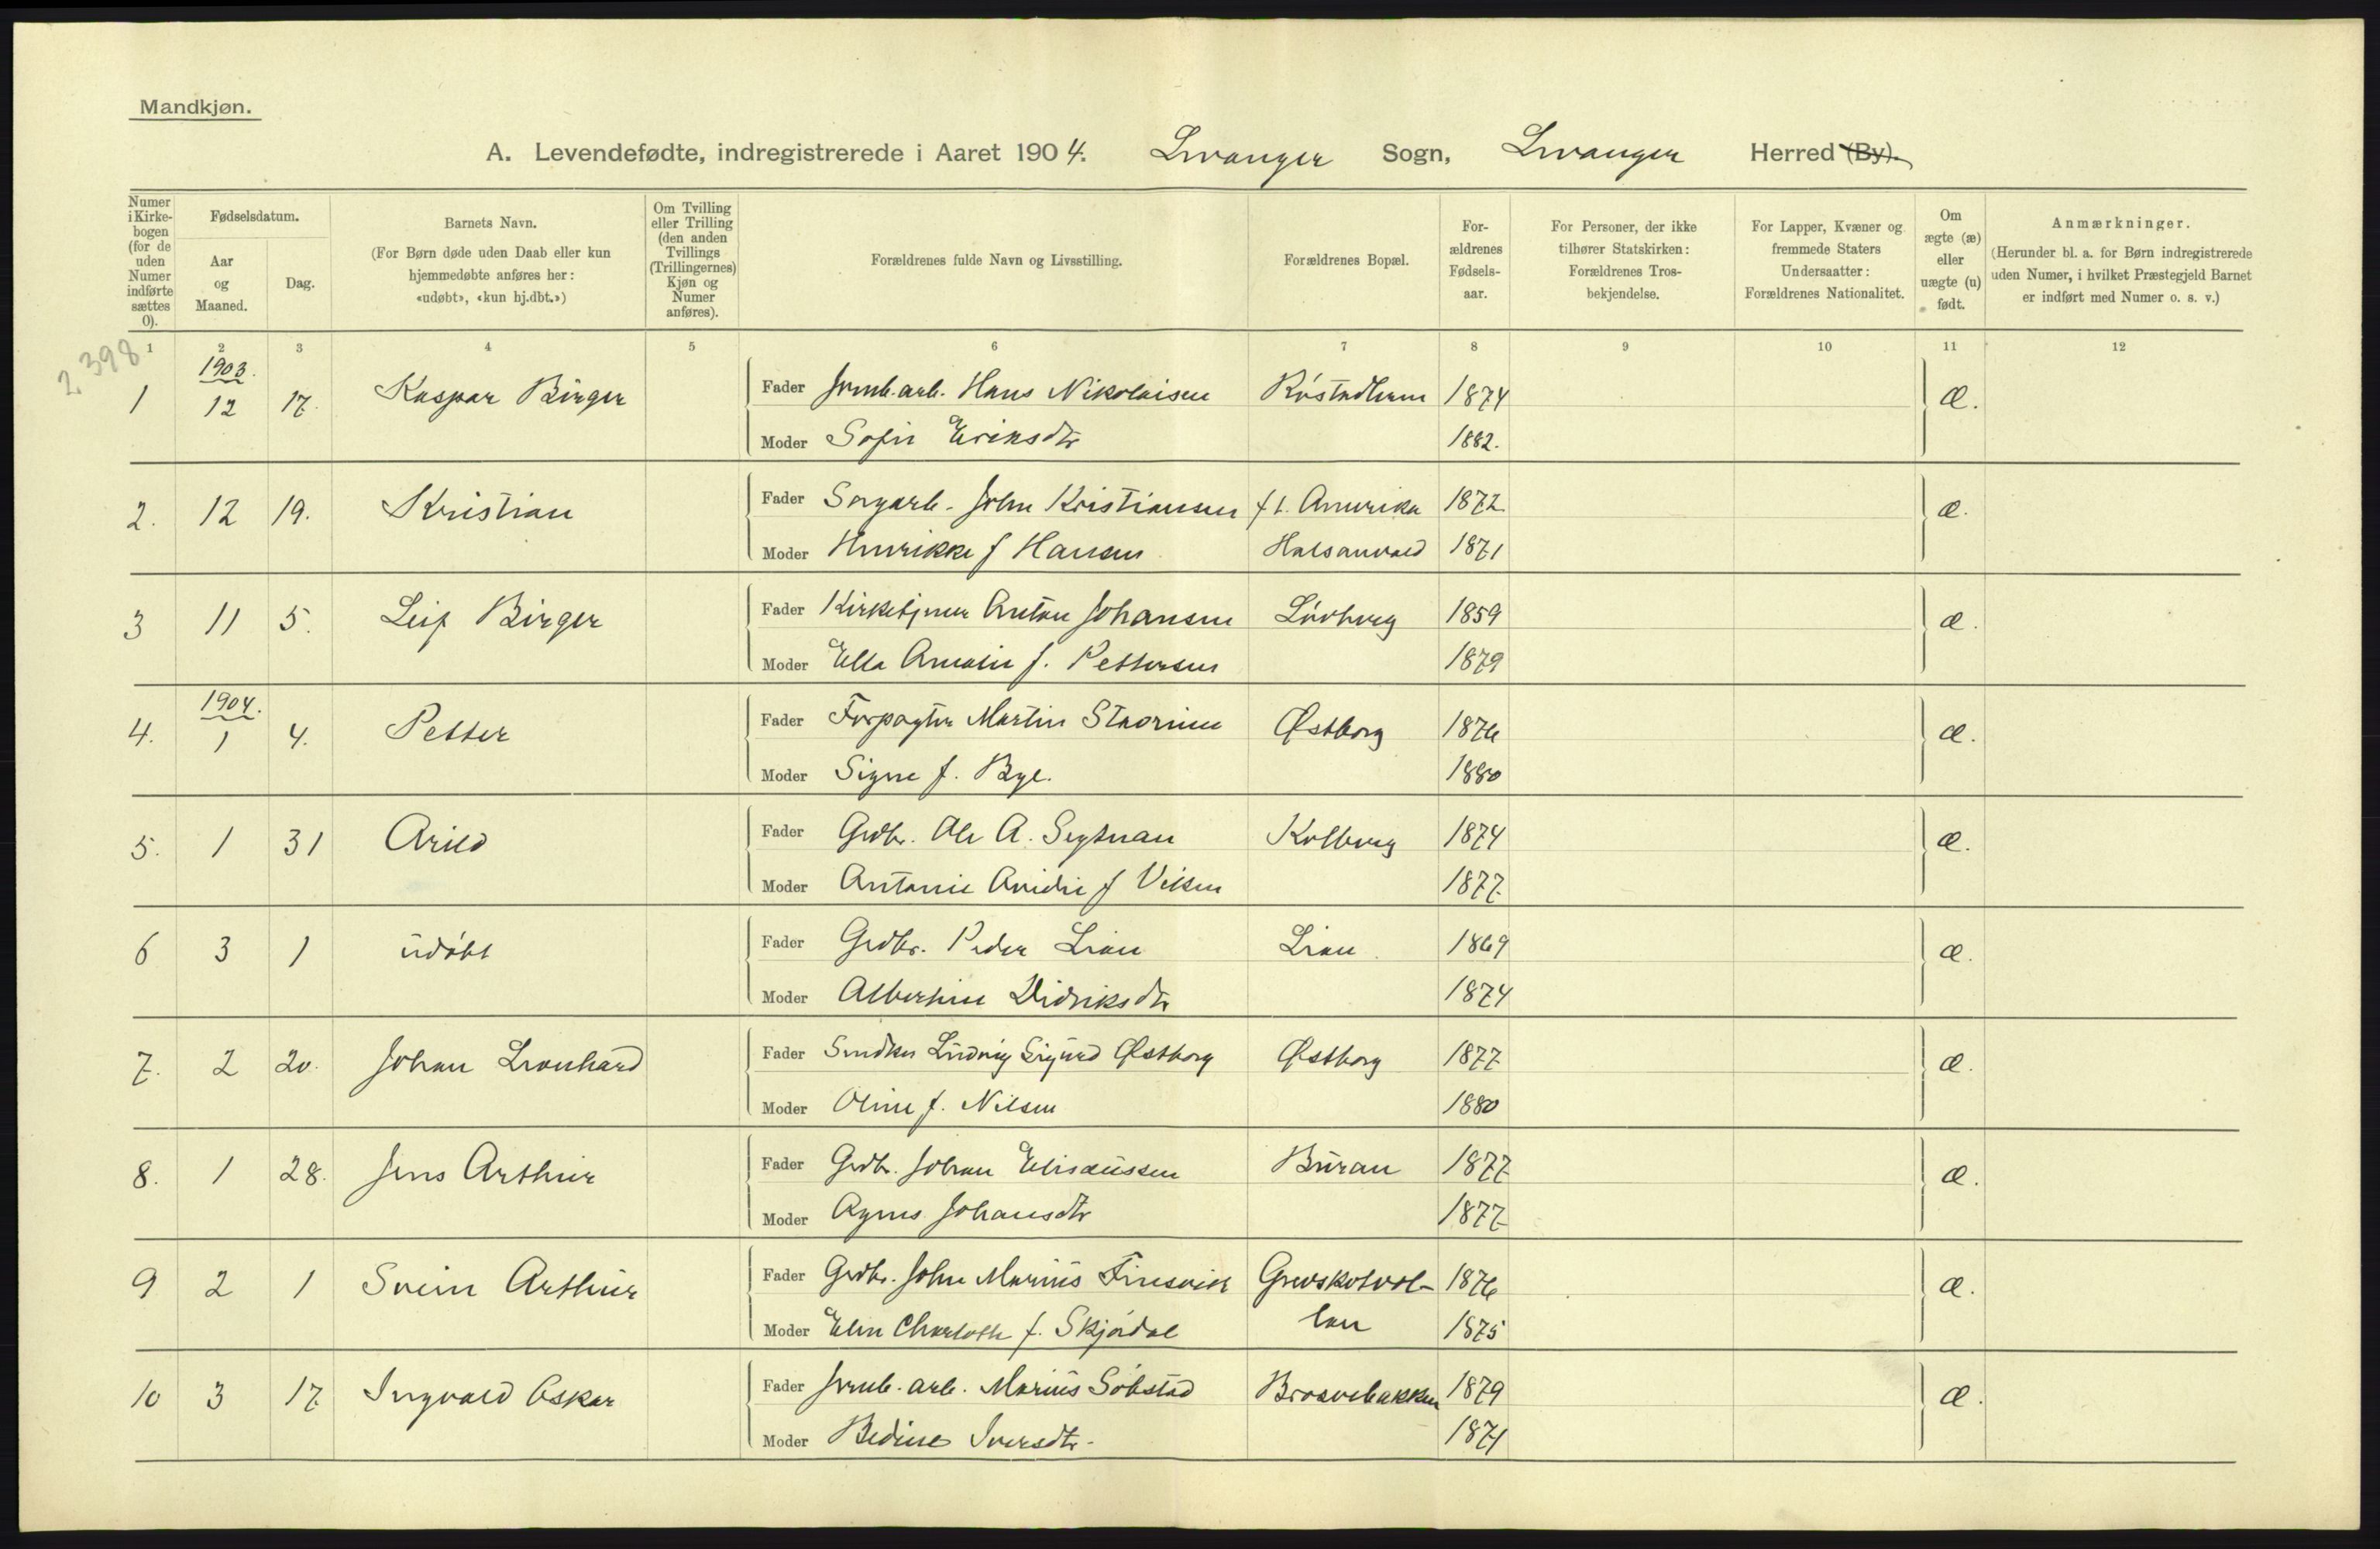 Mandkjøn.
A. Levendefødte, indregistrerede i Aaret 1904. Levanger Sogn, Levanger Herred (By).
Numer i Kirkebogen (for de uden Numer indførte sættes 0).
Fødselsdatum.
Aar og Maaned.
Dag.
Barnets Navn.
(For Børn døde uden Daab eller kun hjemmedøbte anføres her: «udøbt», «kun hj.dbt.»)
Om Tvilling eller Trilling (den anden Tvillings (Trillingernes) Kjøn og Numer anføres).
Forældrenes fulde Navn og Livsstilling.
Forældrenes Bopæl.
Forældrenes Fødselsaar.
For Personer, der ikke tilhører Statskirken: Forældrenes Trosbekjendelse.
For Lapper, Kvæner og fremmede Staters Undersaatter: Forældrenes Nationalitet.
Om ægte (æ) eller uægte (u) født.
Anmærkninger.
(Herunder bl. a. for Børn indregistrerede uden Numer, i hvilket Præstegjeld Barnet er indført med Numer o. s. v.)
1 2 3 4 5 6 7 8 9 10 11 12
2398
1903.
1 12 17. Kaspar Birger Fader Jernb.arb. Hans Nikolaisen Røstadlunn 1874 æ.
Moder Sofie Eriksdtr 1882.
2. 12 19. Kristian Fader Sagarb. John Kristiansen f.t. Amerika 1872 æ.
Moder Henrikke f Hansen Halsanvald 1871
3 11 5. Leif Birger Fader Kirketjener Anton Johansen Løvberg 1859 æ.
Moder Ella Amalie f. Pettersen 1879
1904.
4. 1 4. Petter Fader Forpagter Martin Østborg 1876 æ.
Moder Signe f. Bye. 1880
5. 1 31 Arild Fader Grdbr. Ole A. Segtnan Kolberg 1874 æ.
Moder Antonie f 1877
6 3 1 udøbt Fader Grdbr. Peder Lian Lian 1869 æ.
Moder Albertine Didriksdtr 1874
7. 2 20. Johan Leonhard Fader Snedker Ludvig Sigurd Østborg Østborg 1877 æ.
Moder Oline f. Nilsen 1880
8. 1 28. Jens Arthur Fader Grdbr. Johan Elisæussen Buran 1877 æ.
Moder Agnes Johansdtr 1877
9 2 1 Svein Arthur Fader Grdbr. John Marius Finsvik Grevskotvol- 1876 æ.
Moder Elen Charlotte f. Skjørdal len 1875
10 3 17. Ingvald Oskar Fader Jernb. arb. Marius Søbstad Brosvebakken 1879 æ.
Moder Bedine Iversdtr. 1871